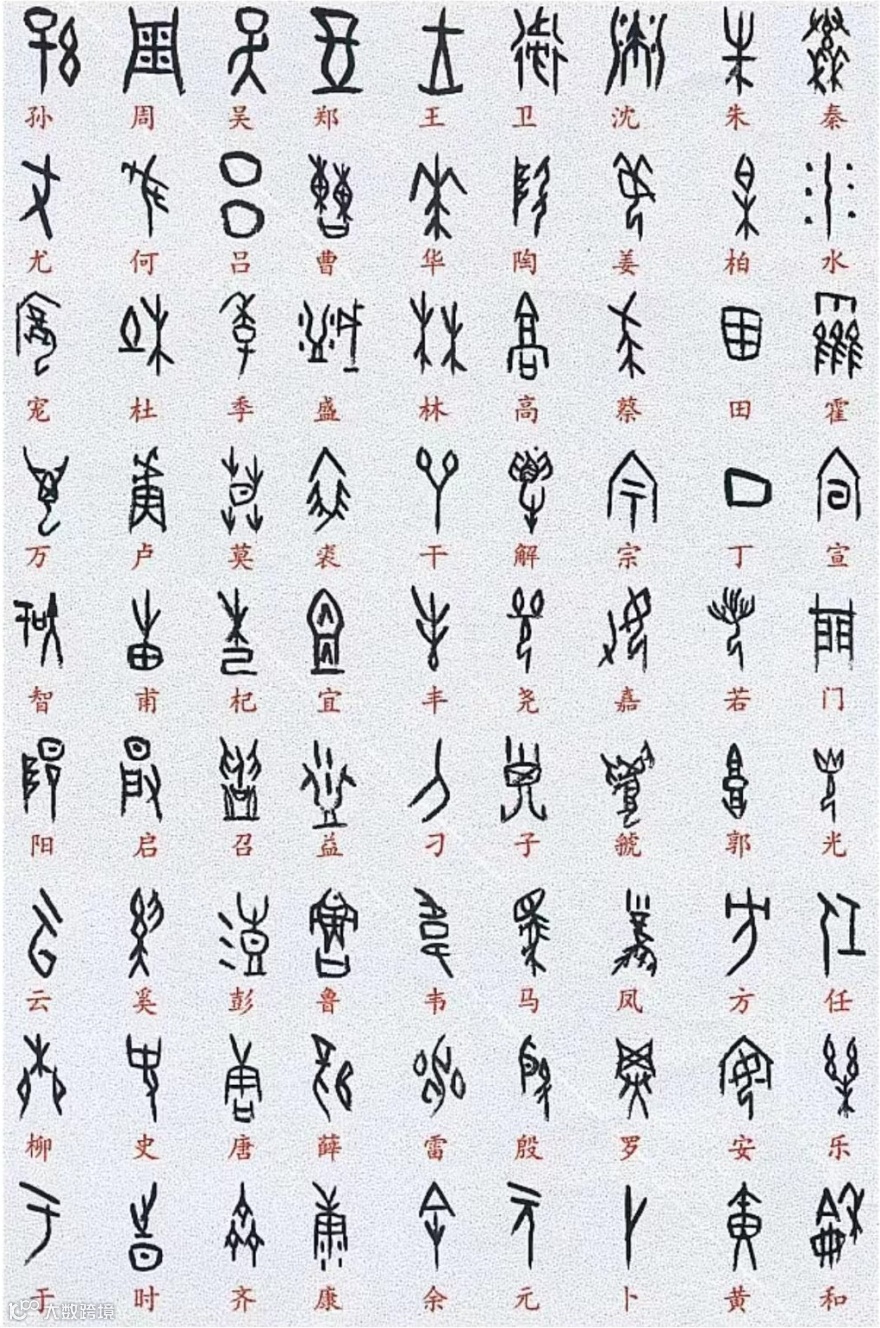 孙 周 吴 郑 王 卫 沈 朱 秦
尤 何 吕 曹 华 陶 姜 柏 水
宠 杜 季 盛 林 高 蔡 田 霍
万 卢 莫 裘 干 解 宗 丁 宣
智 甫 杞 宜 丰 尧 嘉 若 门
阳 启 召 益 刁 子 虢 郭 光
云 奚 彭 鲁 韦 马 凤 方 任
柳 史 唐 薛 雷 殷 罗 安 乐
于 时 齐 康 余 元 卜 黄 和
大数跨境